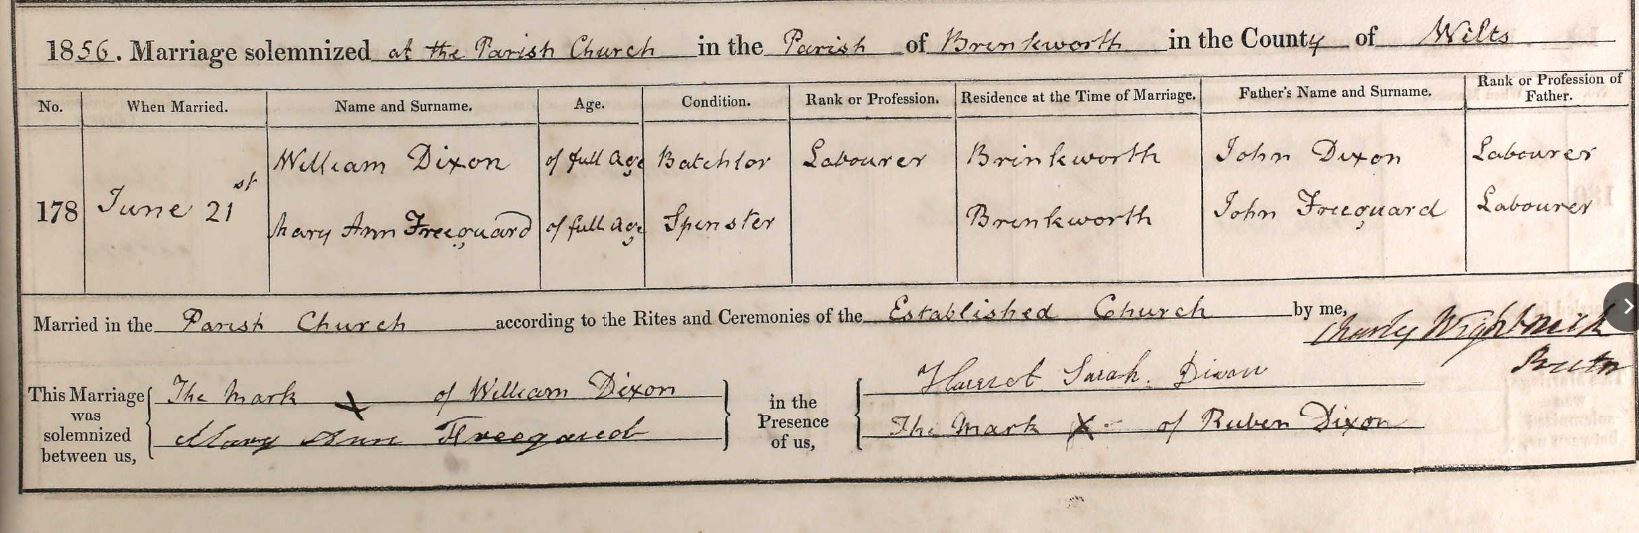 1856. Marriage solemnized at the Parish Church in the Parish of Brinkworth in the County of Wilts
No. When Married. Name and Surname. Age. Condition. Rank or Profession. Residence at the Time of Marriage. Father's Name and Surname. Rank or Profession of Father.
William Dixon of full Age Batchlor Labourer Brinkworth John Dixon Labourer
178 June 21st
Mary Ann Freeguard of full Age Spinster Brinkworth John Freeguard Labourer
Married in the Parish Church according to the Rites and Ceremonies of the Established Church by me, Charles Wightwick
This Marriage was solemnized between us, The Mark X of William Dixon
Mary Ann Freeguard
in the Presence of us, Harriet Sarah Dixon
The Mark X of Ruben Dixon